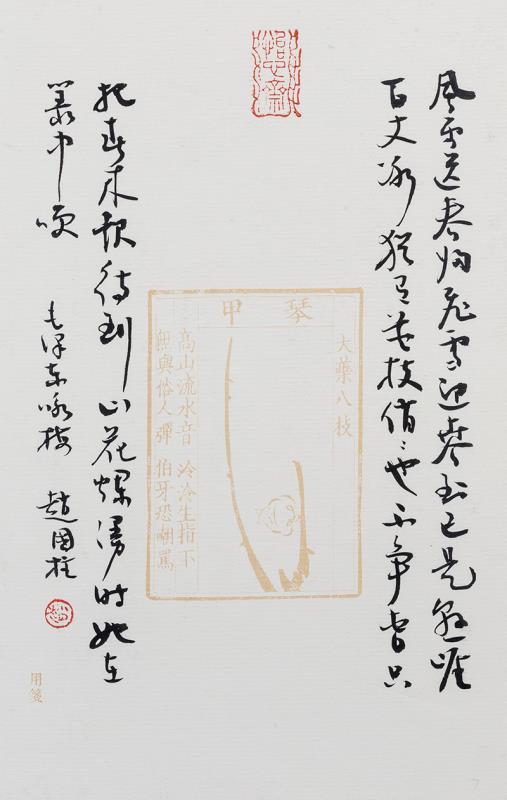 風雨送春归飛雪迎春到已是悬崖
百丈冰犹有花枝俏〻也不争春只
琴甲
大藥八枝
高山流水音 泠泠生指下
無與俗人彈 伯牙恐嘲罵
把春来报待到山花爛漫时她在
叢中咲 毛泽东咏梅 趙國柱
用箋